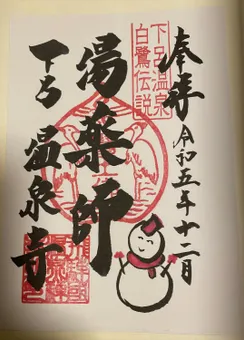 奉拝
令和五年十二月
下呂温泉
白鷺伝説
湯薬師
下呂
温泉寺